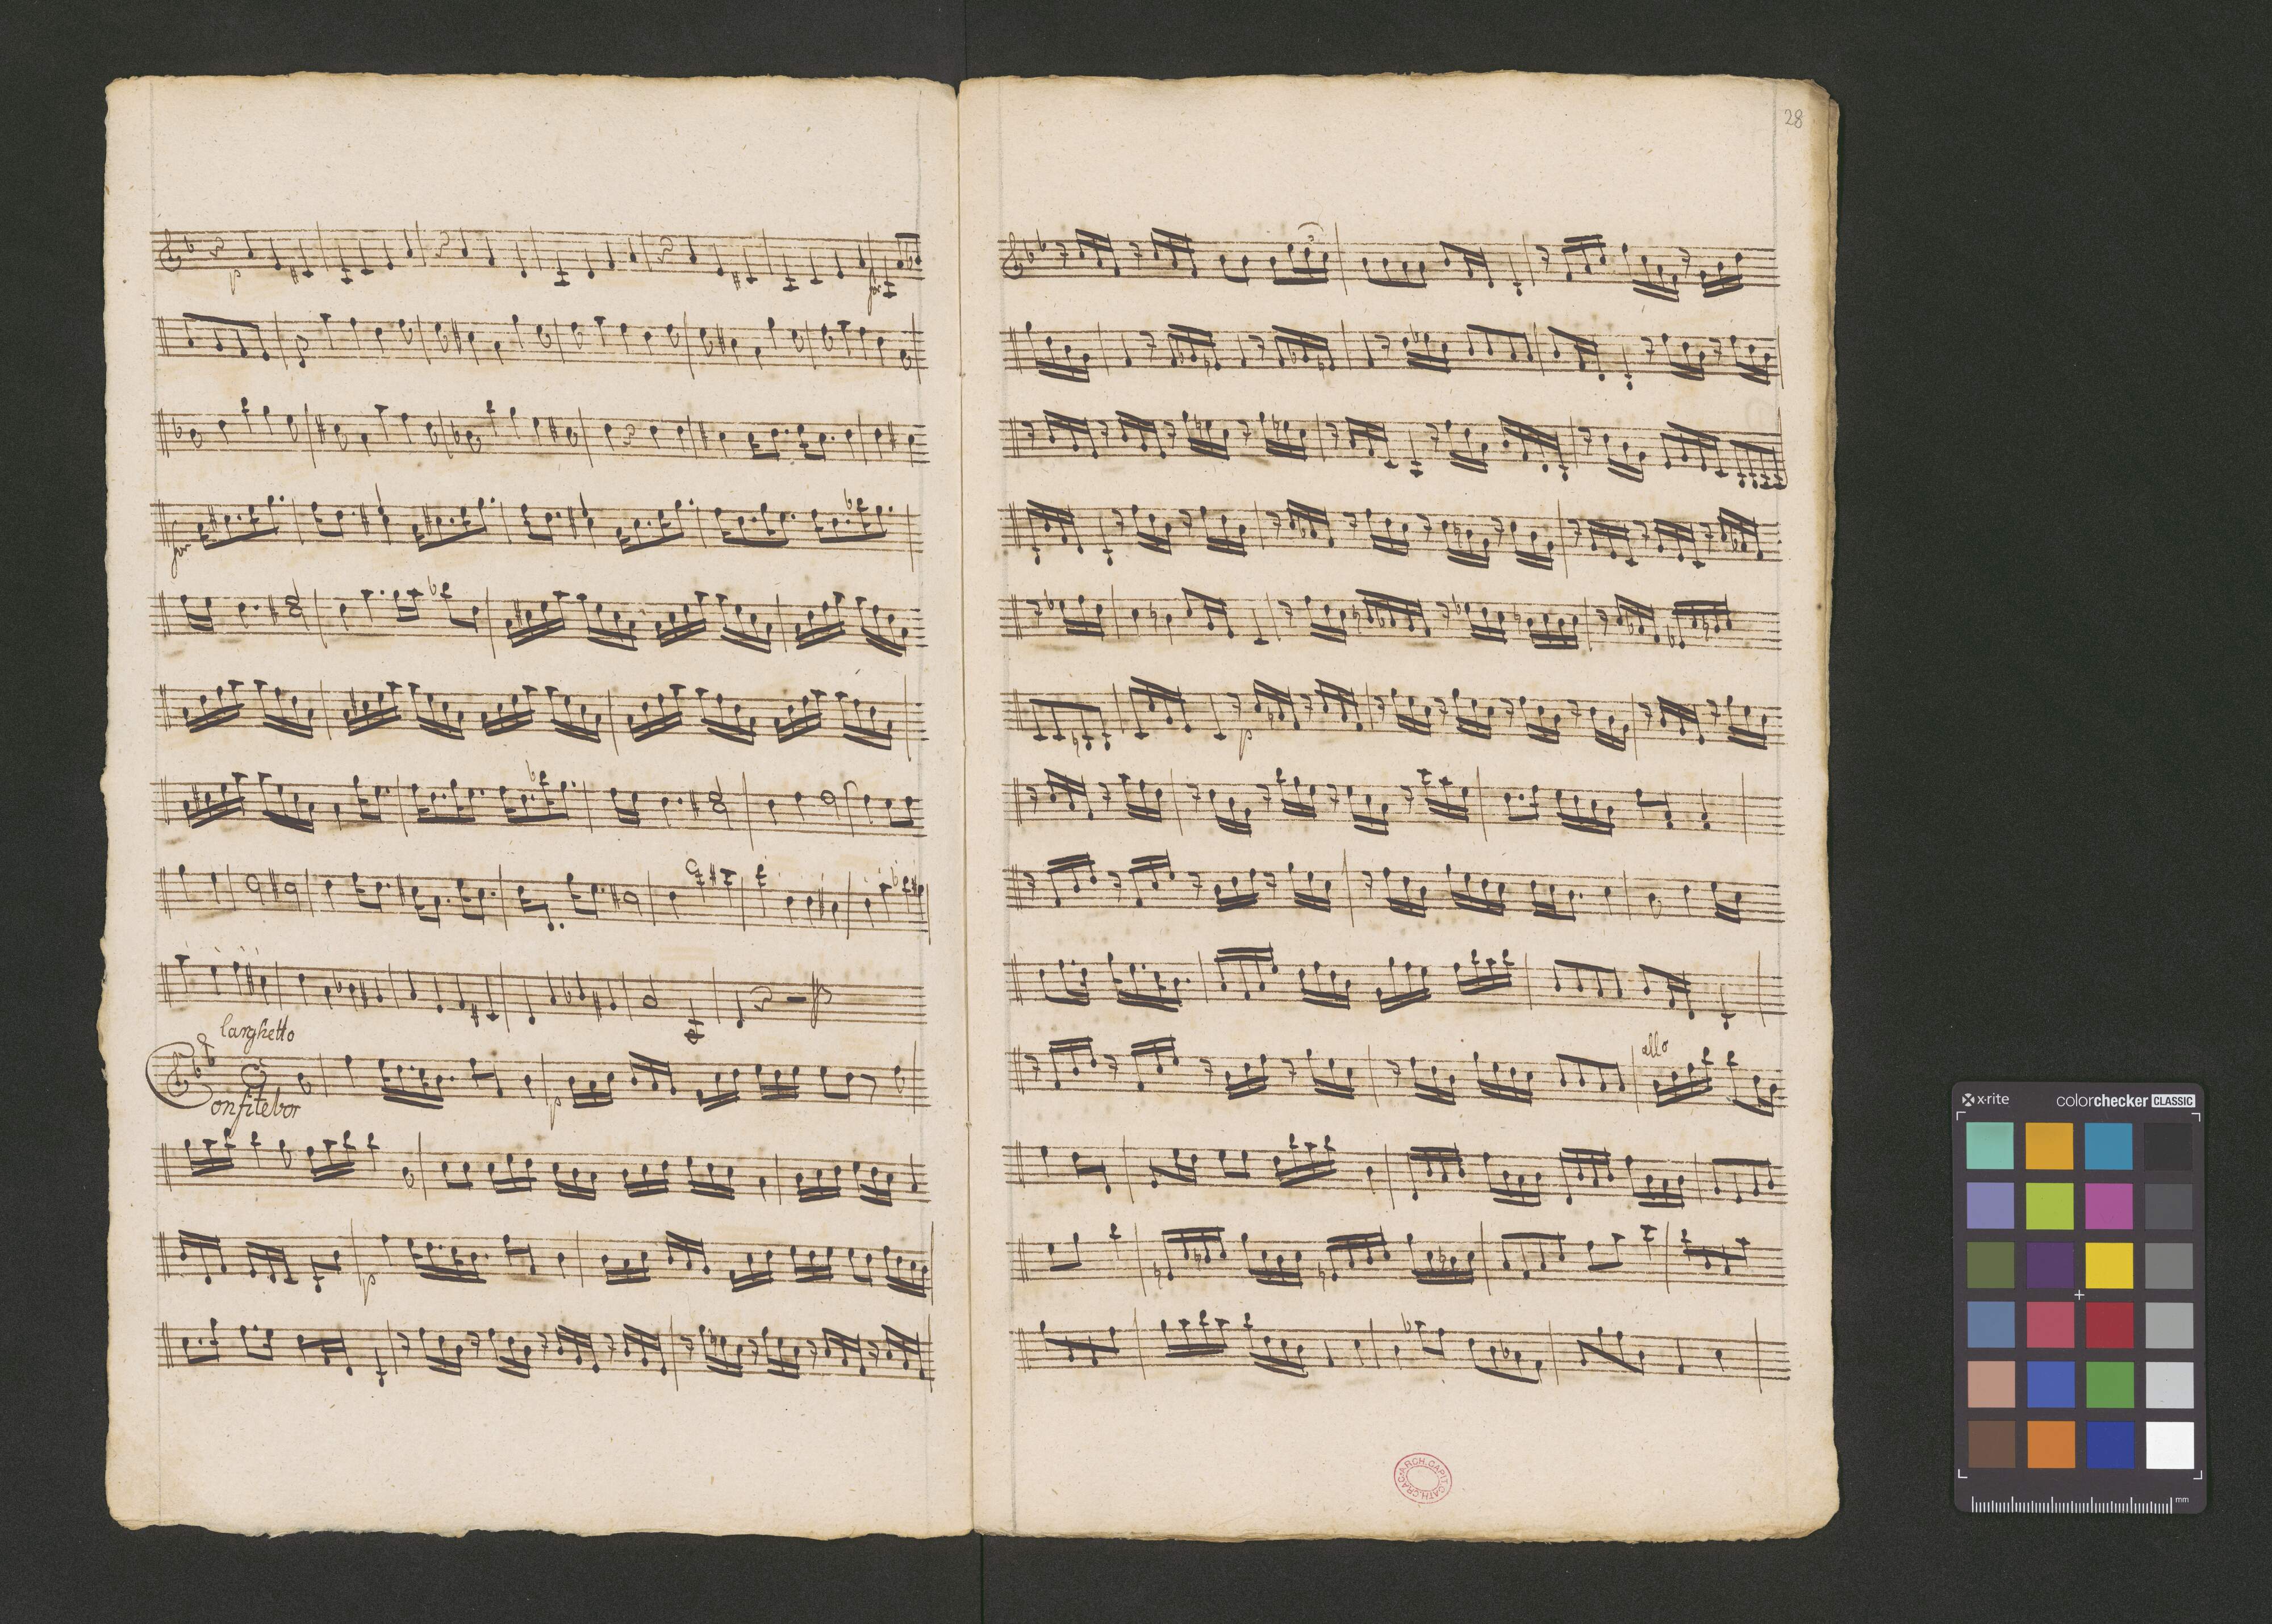 p
for
for
larghetto
Confitebor
p
p
28
3
p
allo
ARCH. CAPIT. CATH. CRAC.
x-rite
colorchecker CLASSIC
mm